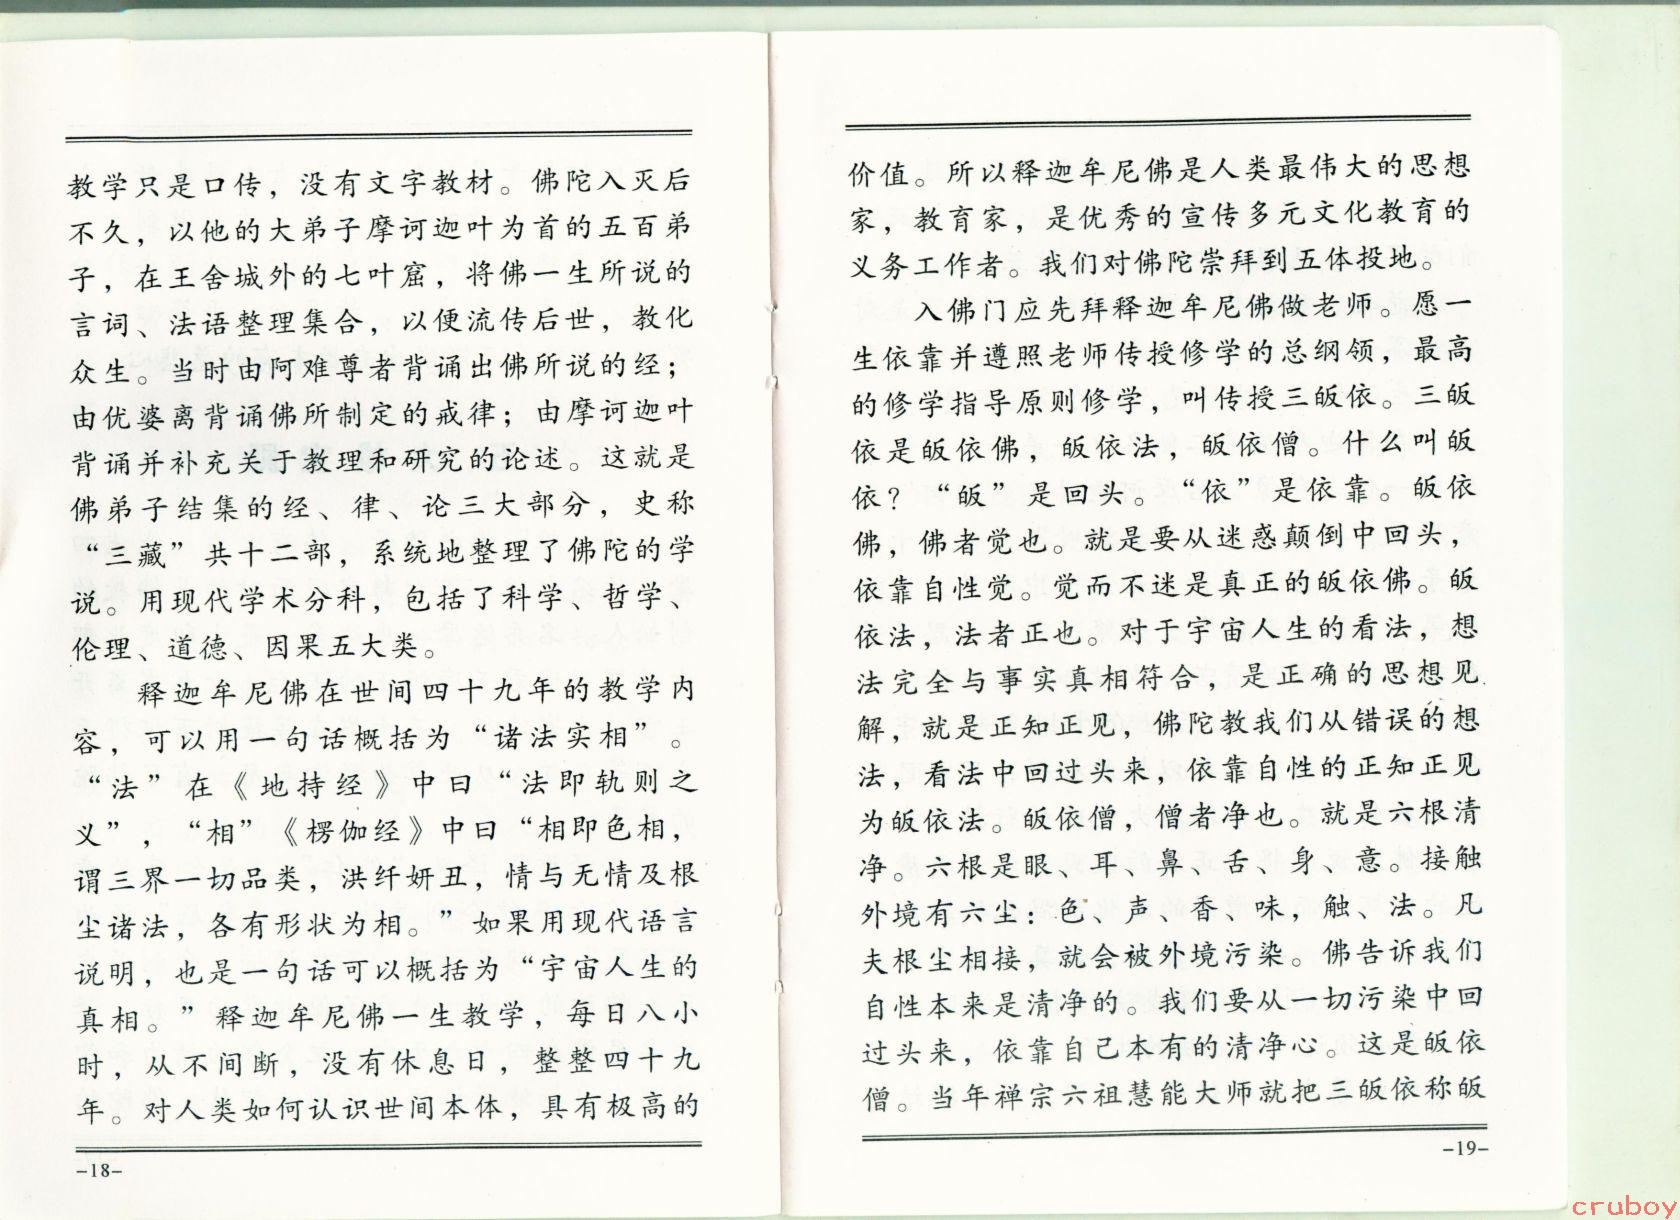 教学只是口传，没有文字教材。佛陀入灭后
不久，以他的大弟子摩诃迦叶为首的五百弟
子，在王舍城外的七叶窟，将佛一生所说的
言词、法语整理集合，以便流传后世，教化
众生。当时由阿难尊者背诵出佛所说的经；
由优婆离背诵佛所制定的戒律；由摩诃迦叶
背诵并补充关于教理和研究的论述。这就是
佛弟子结集的经、律、论三大部分，史称
“三藏”共十二部，系统地整理了佛陀的学
说。用现代学术分科，包括了科学、哲学、
伦理、道德、因果五大类。
释迦牟尼佛在世间四十九年的教学内
容，可以用一句话概括为“诸法实相”。
“法”在《地持经》中曰“法即轨则之
义”，“相”《楞伽经》中曰“相即色相，
谓三界一切品类，洪纤妍丑，情与无情及根
尘诸法，各有形状为相。”如果用现代语言
说明，也是一句话可以概括为“宇宙人生的
真相。”释迦牟尼佛一生教学，每日八小
时，从不间断，没有休息日，整整四十九
年。对人类如何认识世间本体，具有极高的
-18-
价值。所以释迦牟尼佛是人类最伟大的思想
家，教育家，是优秀的宣传多元文化教育的
义务工作者。我们对佛陀崇拜到五体投地。
入佛门应先拜释迦牟尼佛做老师。愿一
生依靠并遵照老师传授修学的总纲领，最高
的修学指导原则修学，叫传授三皈依。三皈
依是皈依佛，皈依法，皈依僧。什么叫皈
依？“皈”是回头。“依”是依靠。皈依
佛，佛者觉也。就是要从迷惑颠倒中回头，
依靠自性觉。觉而不迷是真正的皈依佛。皈
依法，法者正也。对于宇宙人生的看法，想
法完全与事实真相符合，是正确的思想见
解，就是正知正见，佛陀教我们从错误的想
法，看法中回过头来，依靠自性的正知正见
为皈依法。皈依僧，僧者净也。就是六根清
净。六根是眼、耳、鼻、舌、身、意。接触
外境有六尘：色、声、香、味，触、法。凡
夫根尘相接，就会被外境污染。佛告诉我们
自性本来是清净的。我们要从一切污染中回
过头来，依靠自己本有的清净心。这是皈依
僧。当年禅宗六祖慧能大师就把三皈依称皈
-19-
cruboy